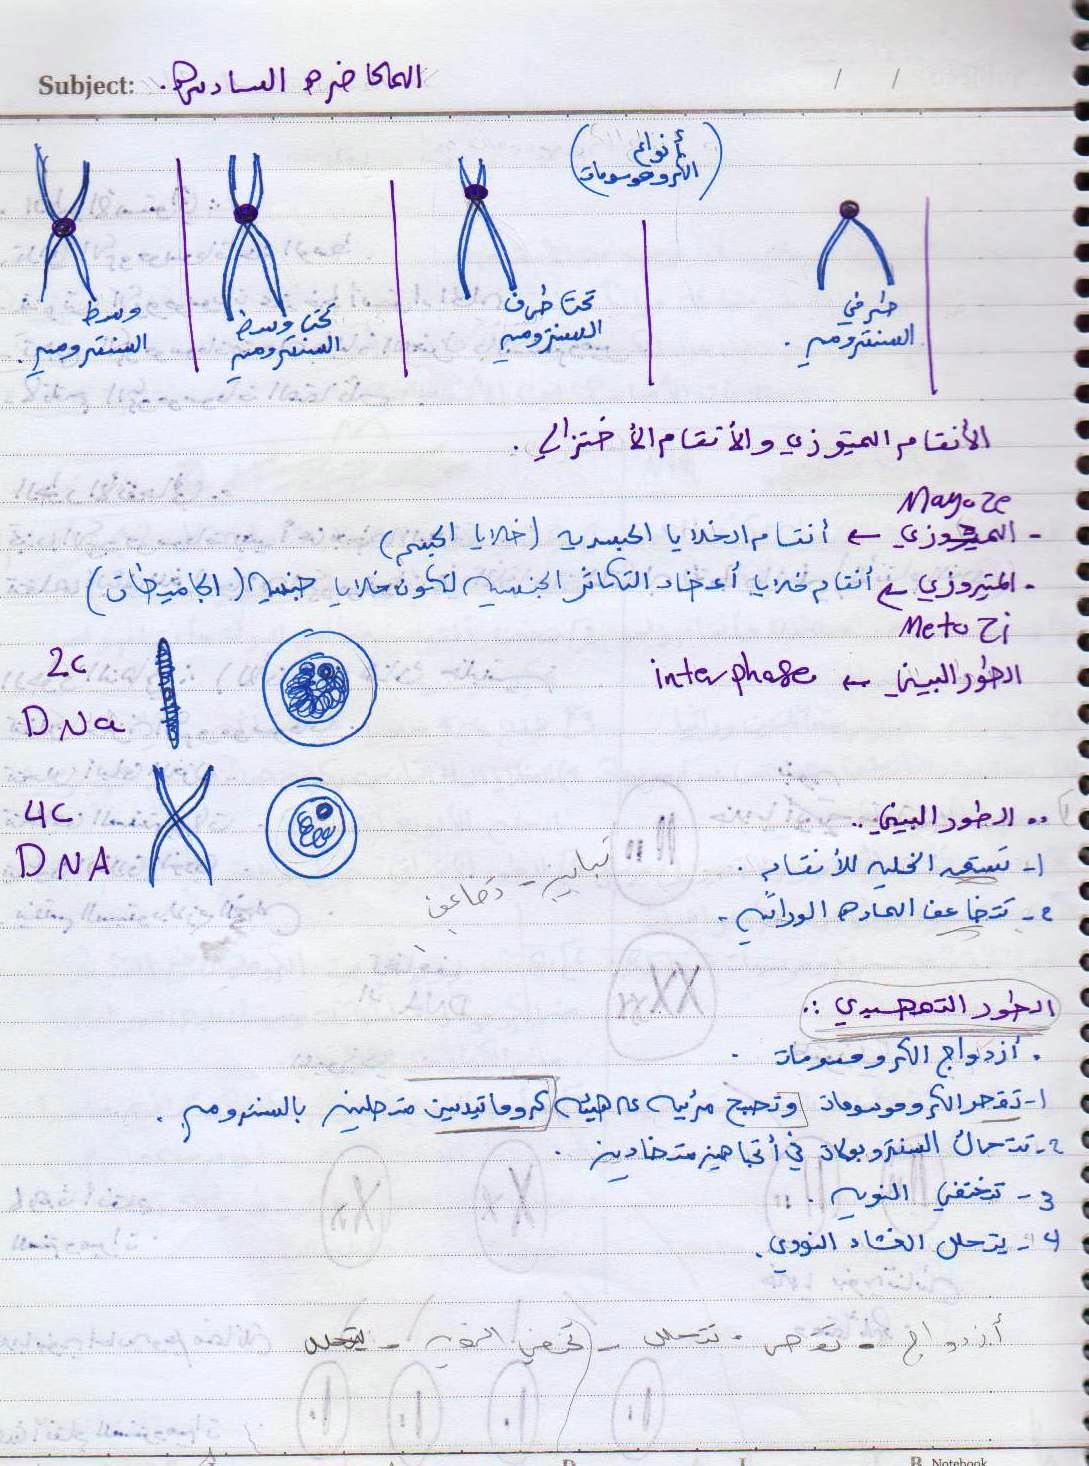 Subject: المحاضره السادسه.
(أنواع
الكروموسومات)
وسط
السنترومير.
تحت وسط
السنترومير
تحت طرف
السنترومير
طرفي
السنترومير.
الأنقسام الميتوزي والأنقسام الأختزالي.
Mayoze
- الميوزي ← أنقسام الخلايا الجسديه (خلايا الجسم)
- المتيروزي ← أنقسام خلايا أعضاء التكاثر الجنسيه لتكون خلايا جنسيه (الجاميطات)
Metozi
الطور البيني ← interphase
2c
DNa
4c
DNA
الطور البيني..
1- تستعد الخليه للأنقسام.
2- تتضاعف الماده الوراثيه.
تضاعف
الطور التمهيدي :.
. أزدواج الكروموسومات.
1- تقصر الكروموسومات وتصبح مرئيه عه هيئه كروماتيدين متصلين بالسنترومير.
2- تتحرك السنتريولات في أتجاهين متضادين.
3- تختفي النويه.
4- يتحلل الغشاء النووي.
أزدواج - تقصر - تتحرك - تختفي النويه - يتحلل
Notebook